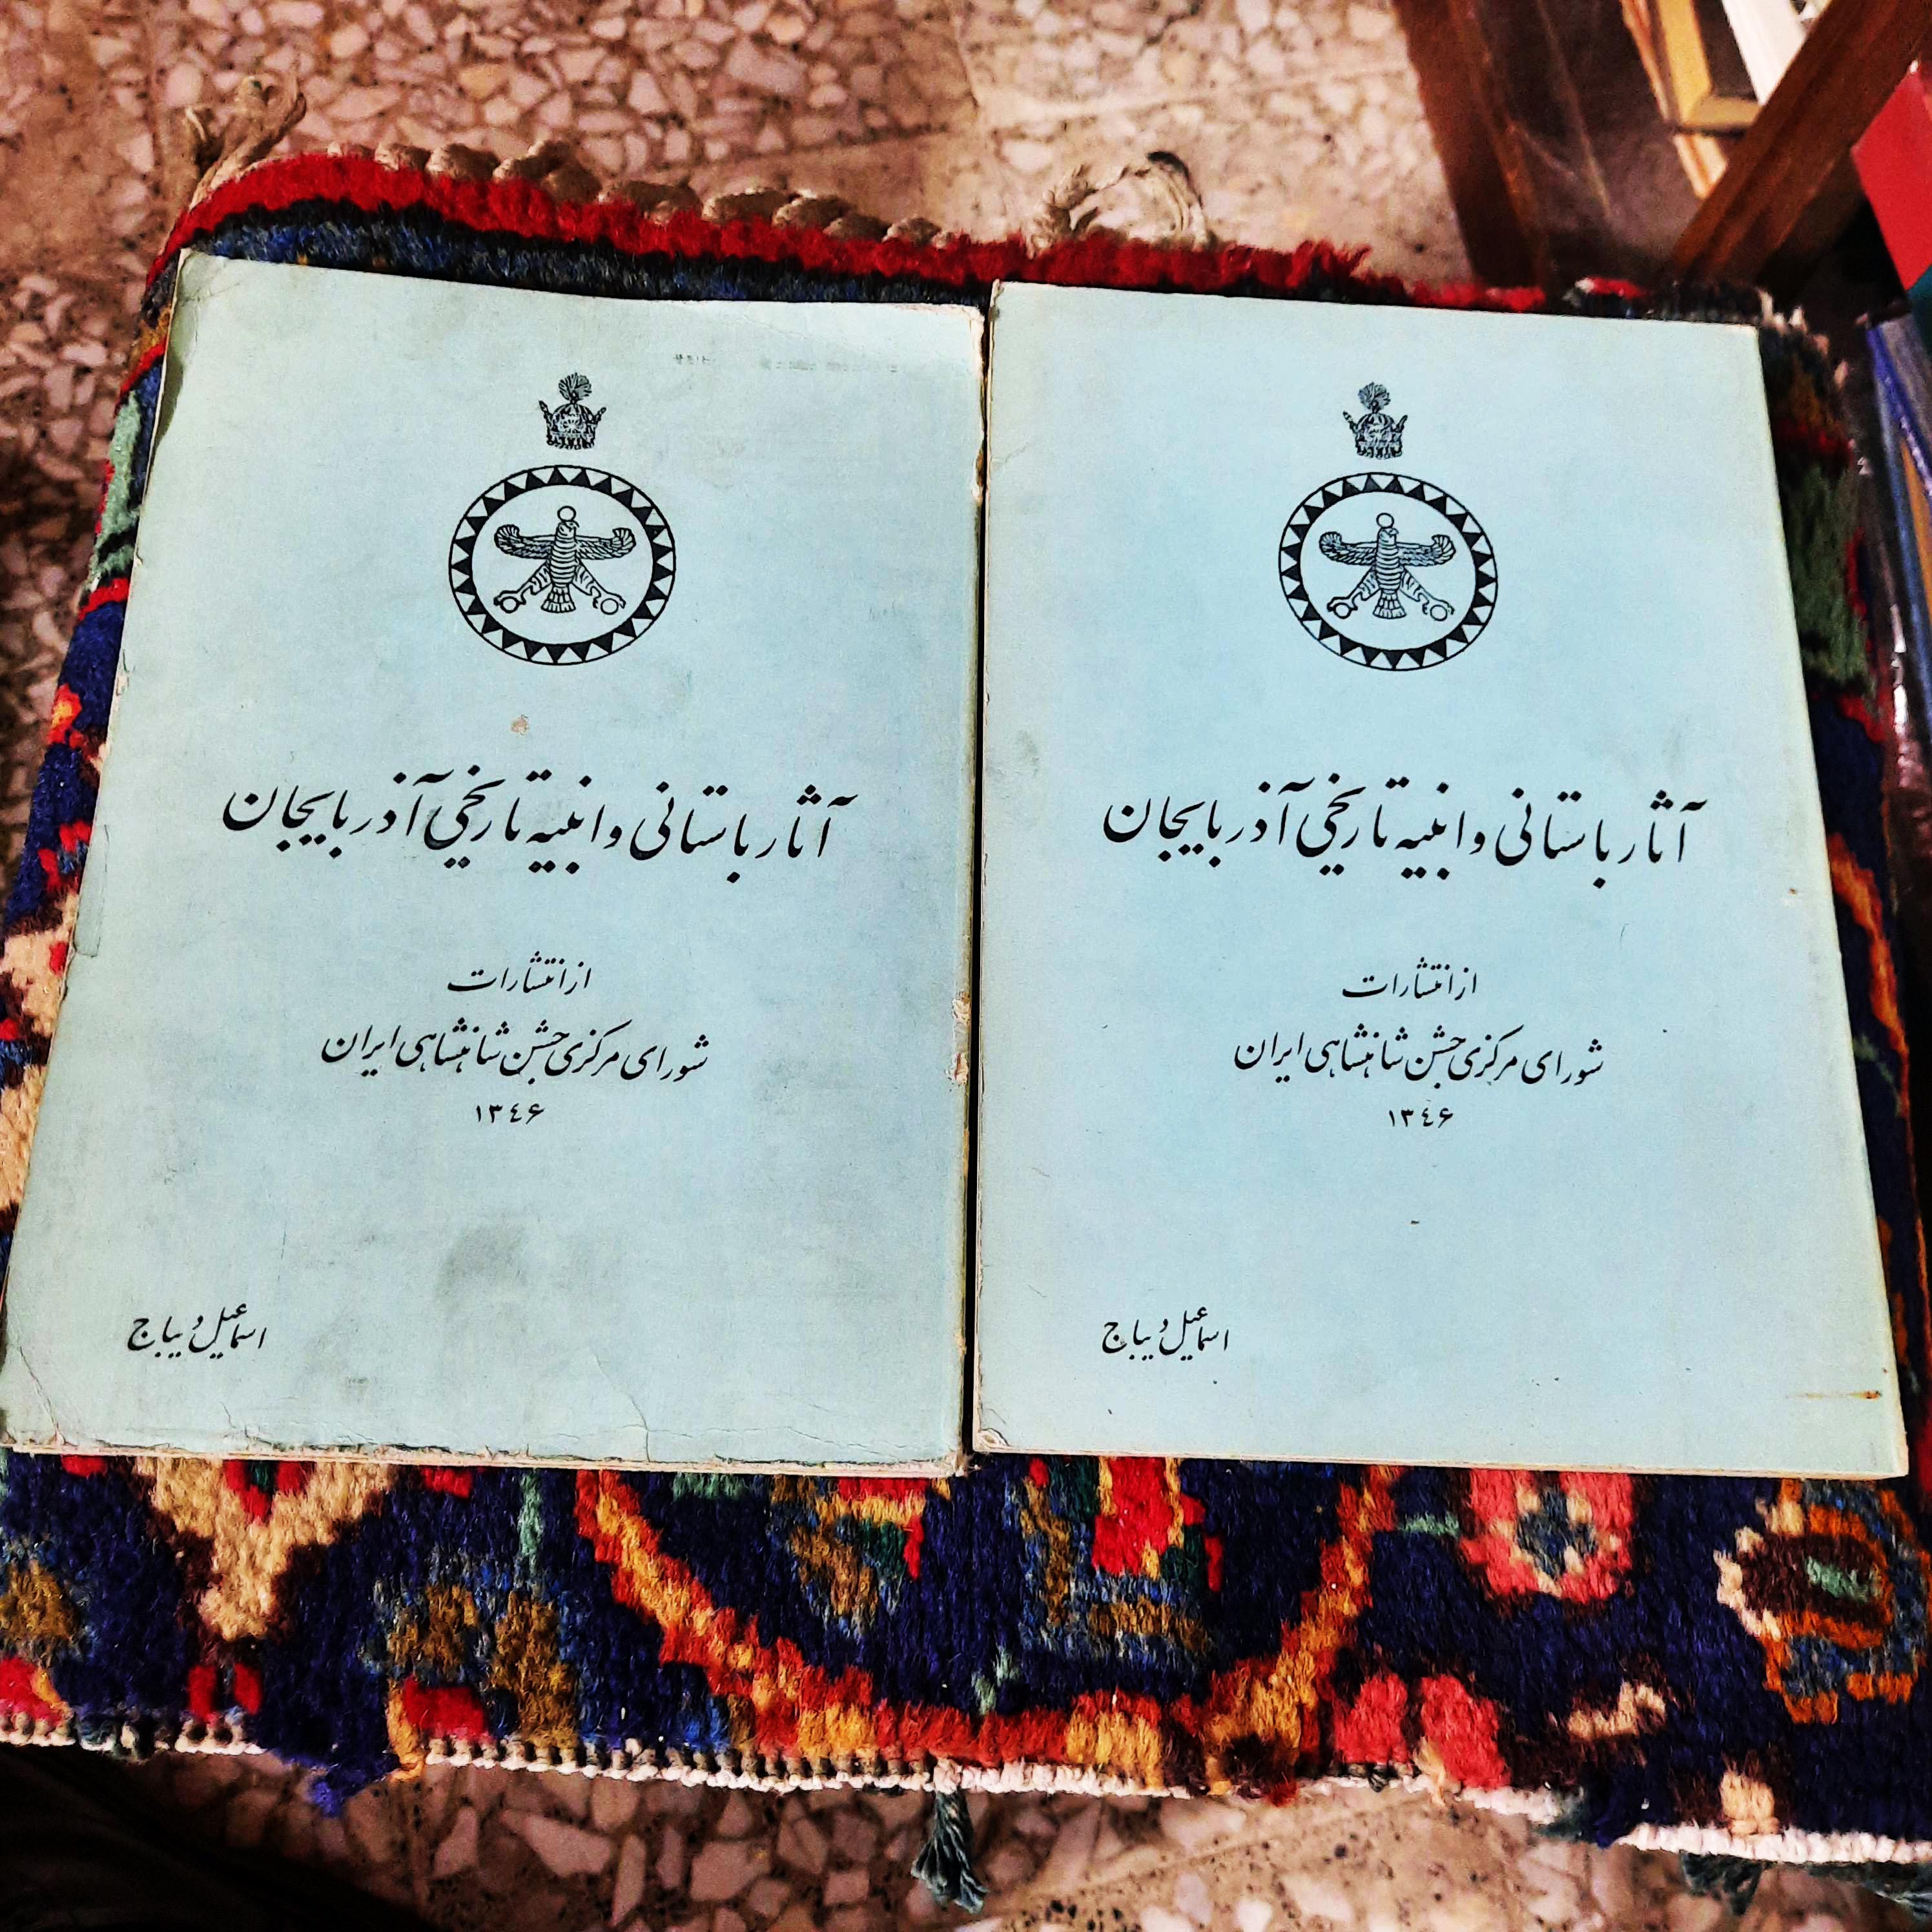 آثار باستانی و ابنیه تاریخی آذربایجان
از انتشارات
شورای مرکزی جشن شاهنشاهی ایران
۱۳٤۶
اسماعیل دیباج
آثار باستانی و ابنیه تاریخی آذربایجان
از انتشارات
شورای مرکزی جشن شاهنشاهی ایران
۱۳٤۶
اسماعیل دیباج